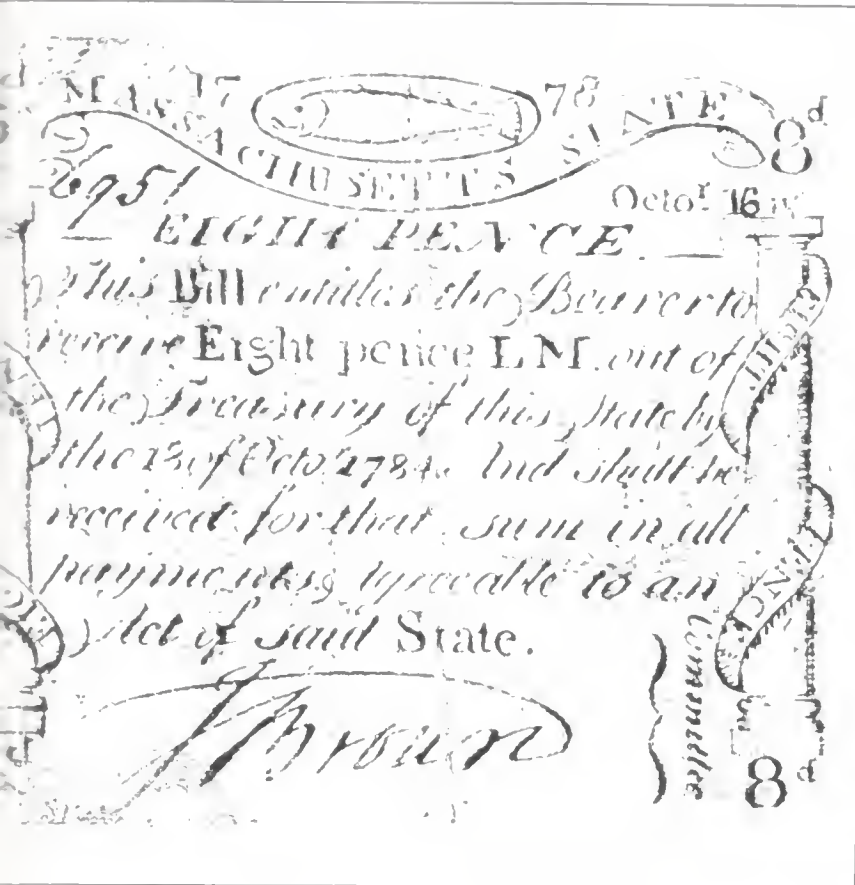 17 78
MASSACHUSETTS STATE
8d
6951
Octor. 16
EIGHT PENCE.
This Bill entitles the Bearer to
receive Eight pence LM. out of
the Treasury of this State by
the 18 of Octor. 1784. And shall be
received for that sum in all
payments agreeable to an
Act of said State.
J Brown
Committee
EIGHT
PENCE
8d